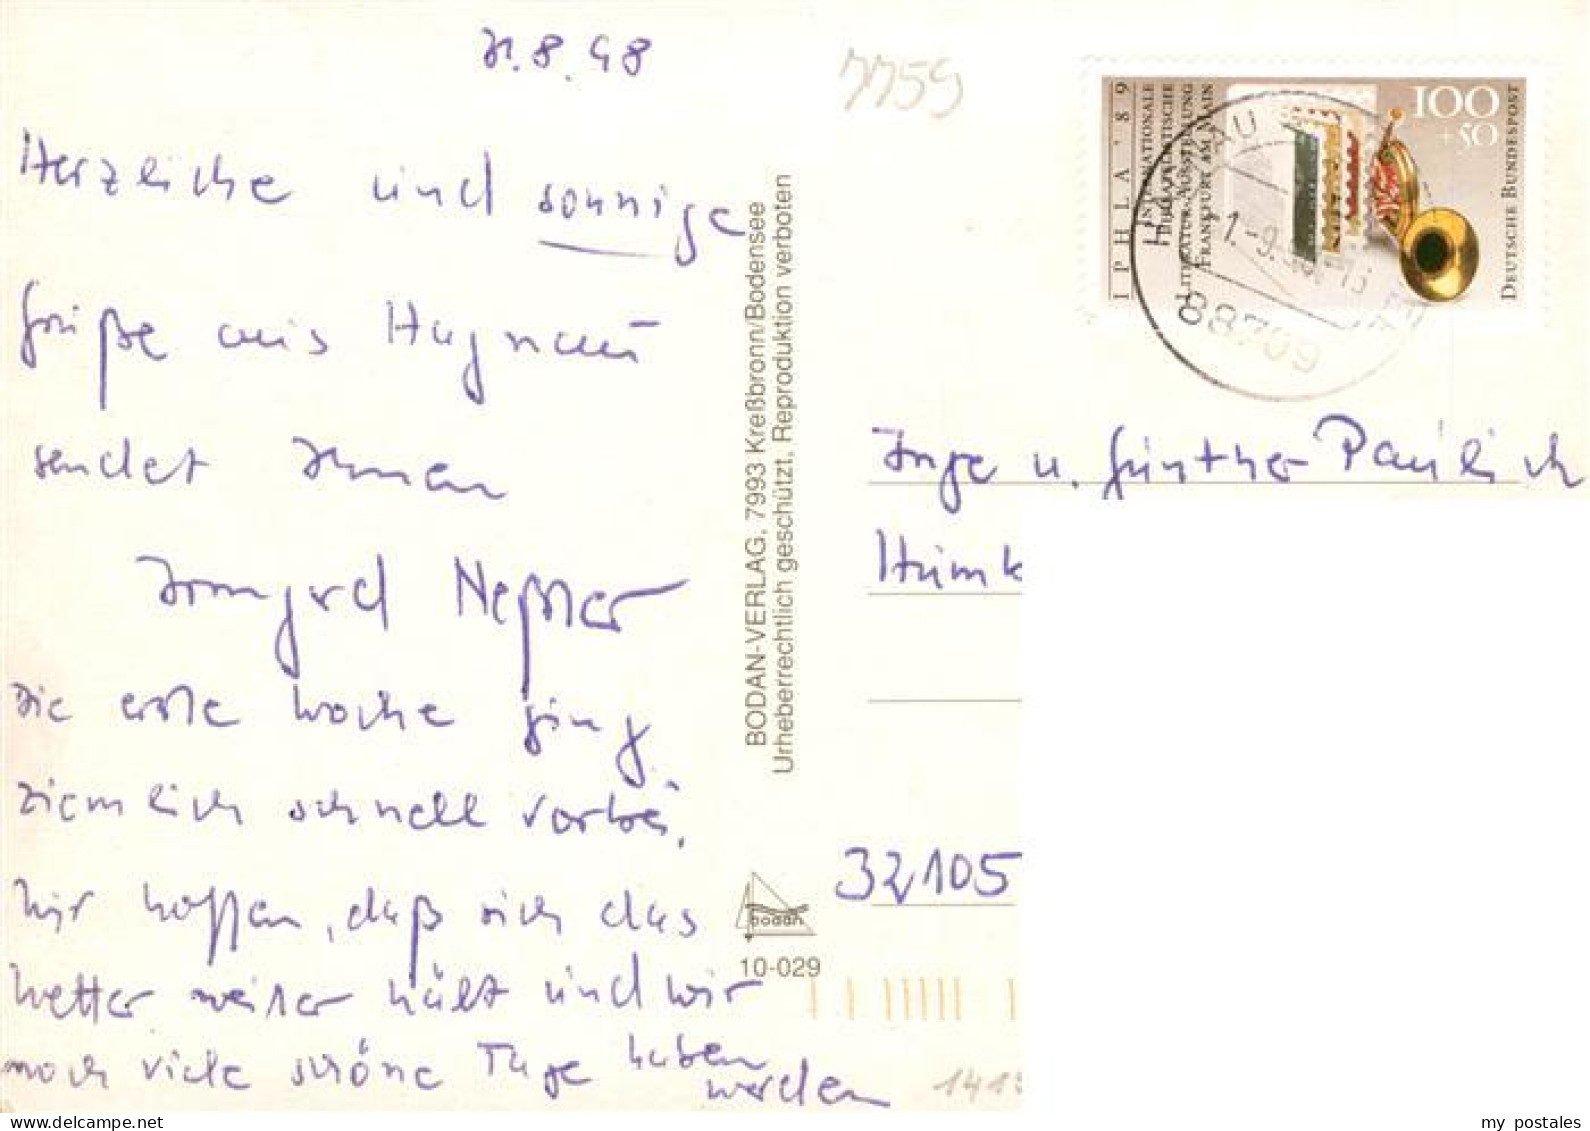 31.8.98
Herzliche und sonnige
Grüße aus Hagnau
sendet Ihnen
Irmgard Neßler
Die erste Woche ging
ziemlich schnell vorbei.
Wir hoffen, daß sich das
Wetter weiter hält und wir
noch viele schöne Tage haben
werden
BODAN-VERLAG, 7993 Kreßbronn/Bodensee
Urheberrechtlich geschützt, Reproduktion verboten
bodan
10-029
7759
IPHLA '89
INTERNATIONALE
PHILATELISTISCHE
LITERATURAUSSTELLUNG
FRANKFURT AM MAIN
100
+50
DEUTSCHE BUNDESPOST
88709
Inge u. Günther Paulisch
32105
141
my postales